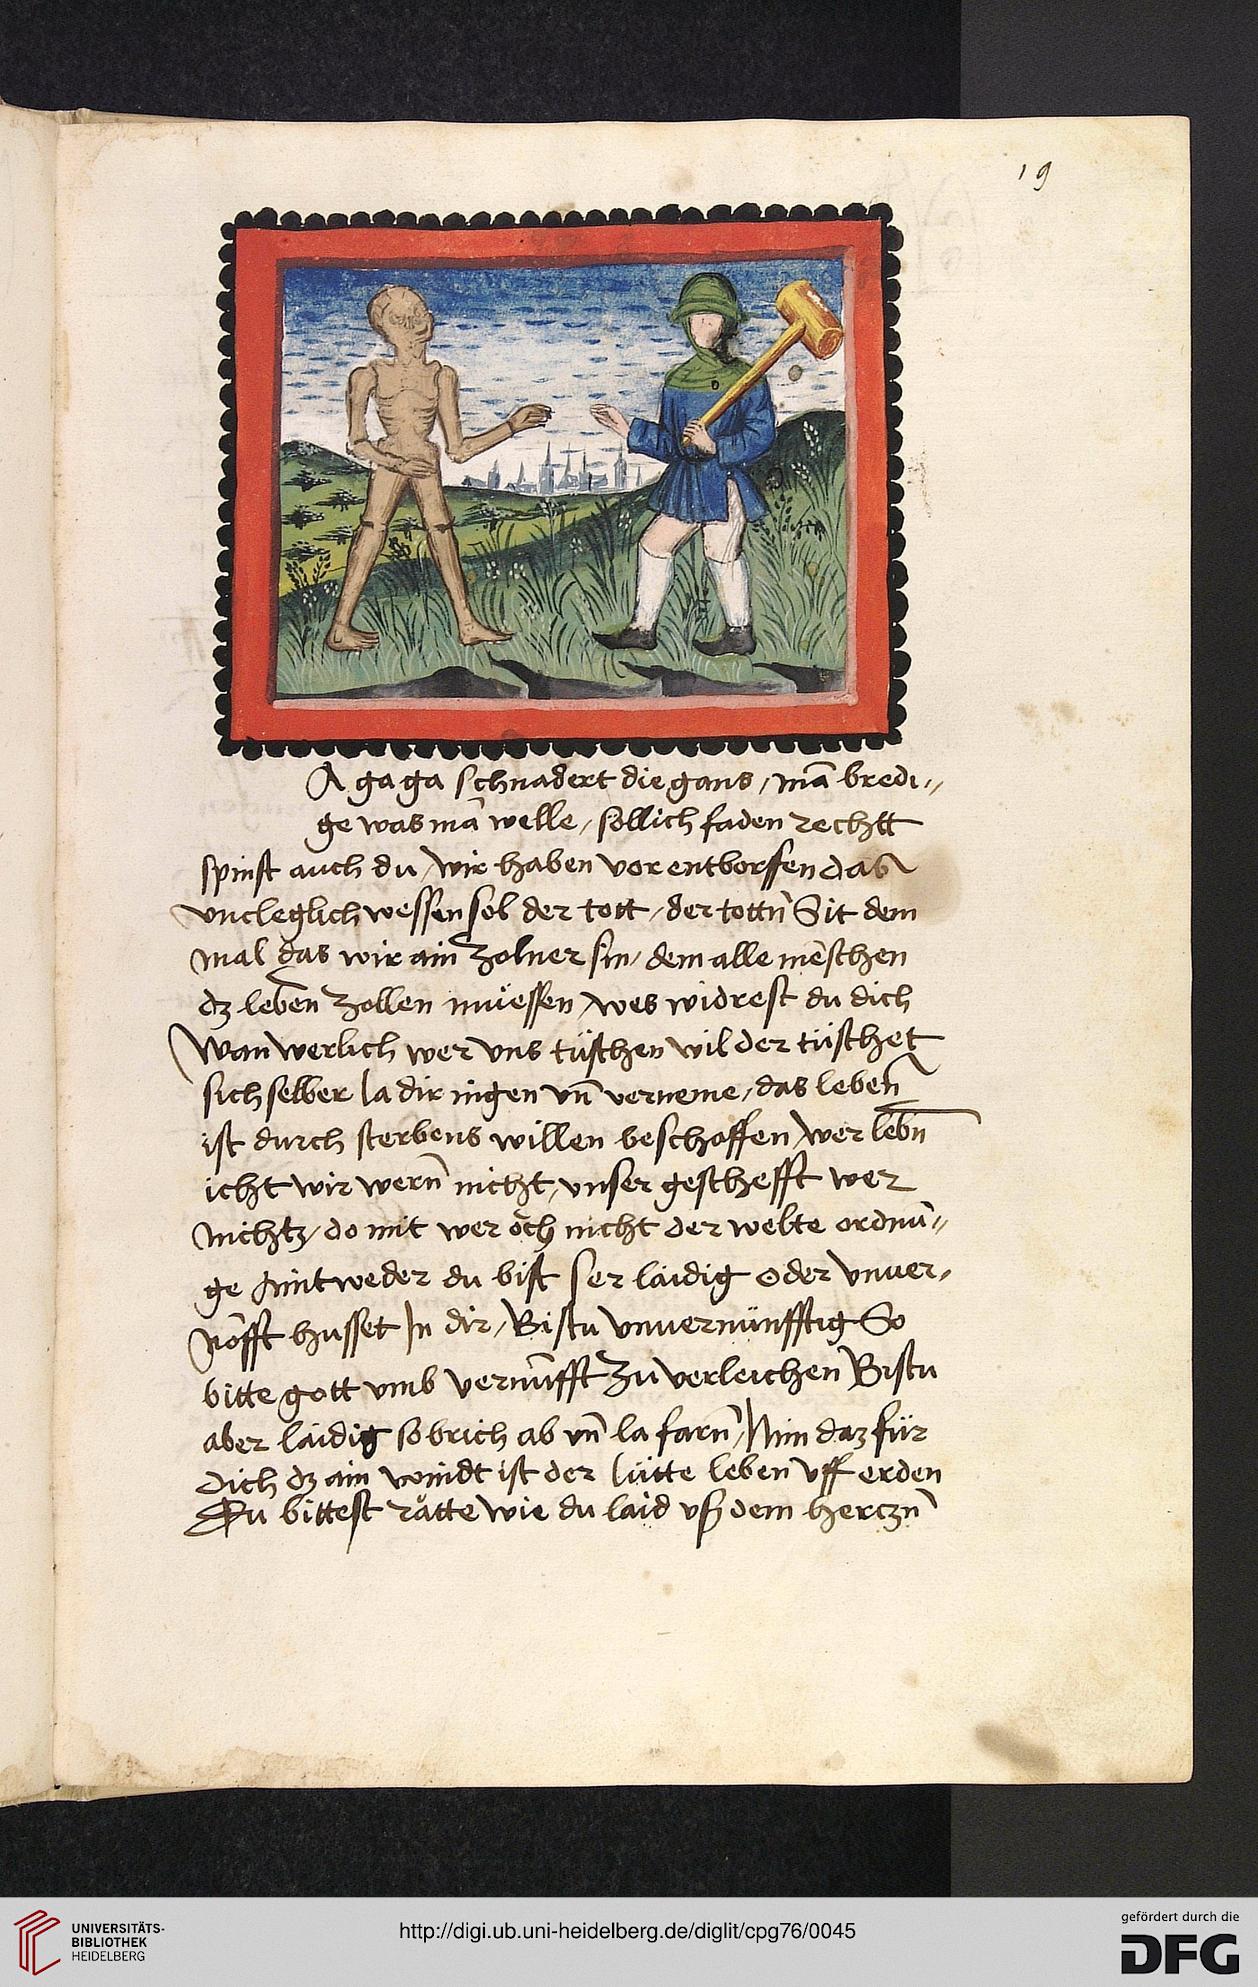 19
A ga ga schnadert die gans / mā bredi〃
ge was mā welle / sollich faden rechtt
spinst auch du / wir haben vor entborffen das
vncleglich wessen sol der tott / der tottn̄ Sit dem
mal das wir ain zolner sin / dem alle mēschen
dz leben zollen müessen / wes widrest du dich
Wan werlich wer vns tüschen wil der tüschet
sich selber la dir ingen vn̄ verneme / das leben
ist durch sterbens willen beschaffen / wer lebn̄
icht wir wern̄ nicht / vnser geschefft wer
nichtz / do mit wer och nicht der welte ordnū〃
ge Aintweder du bist ser laidig oder vnuer〃
nöfft husset In dir / Bistu vnuernünfftig So
bitte gott vmb vernūfft zu verleichen Bistu
aber laidig so brich ab vn̄ la farn̄ / Nim daz für
dich dz ain windt ist der lütte leben vff erden
Du bittest rätte wie du laid vß dem herczn̄
UNIVERSITÄTS-
BIBLIOTHEK
HEIDELBERG
http://digi.ub.uni-heidelberg.de/diglit/cpg76/0045
gefördert durch die
DFG